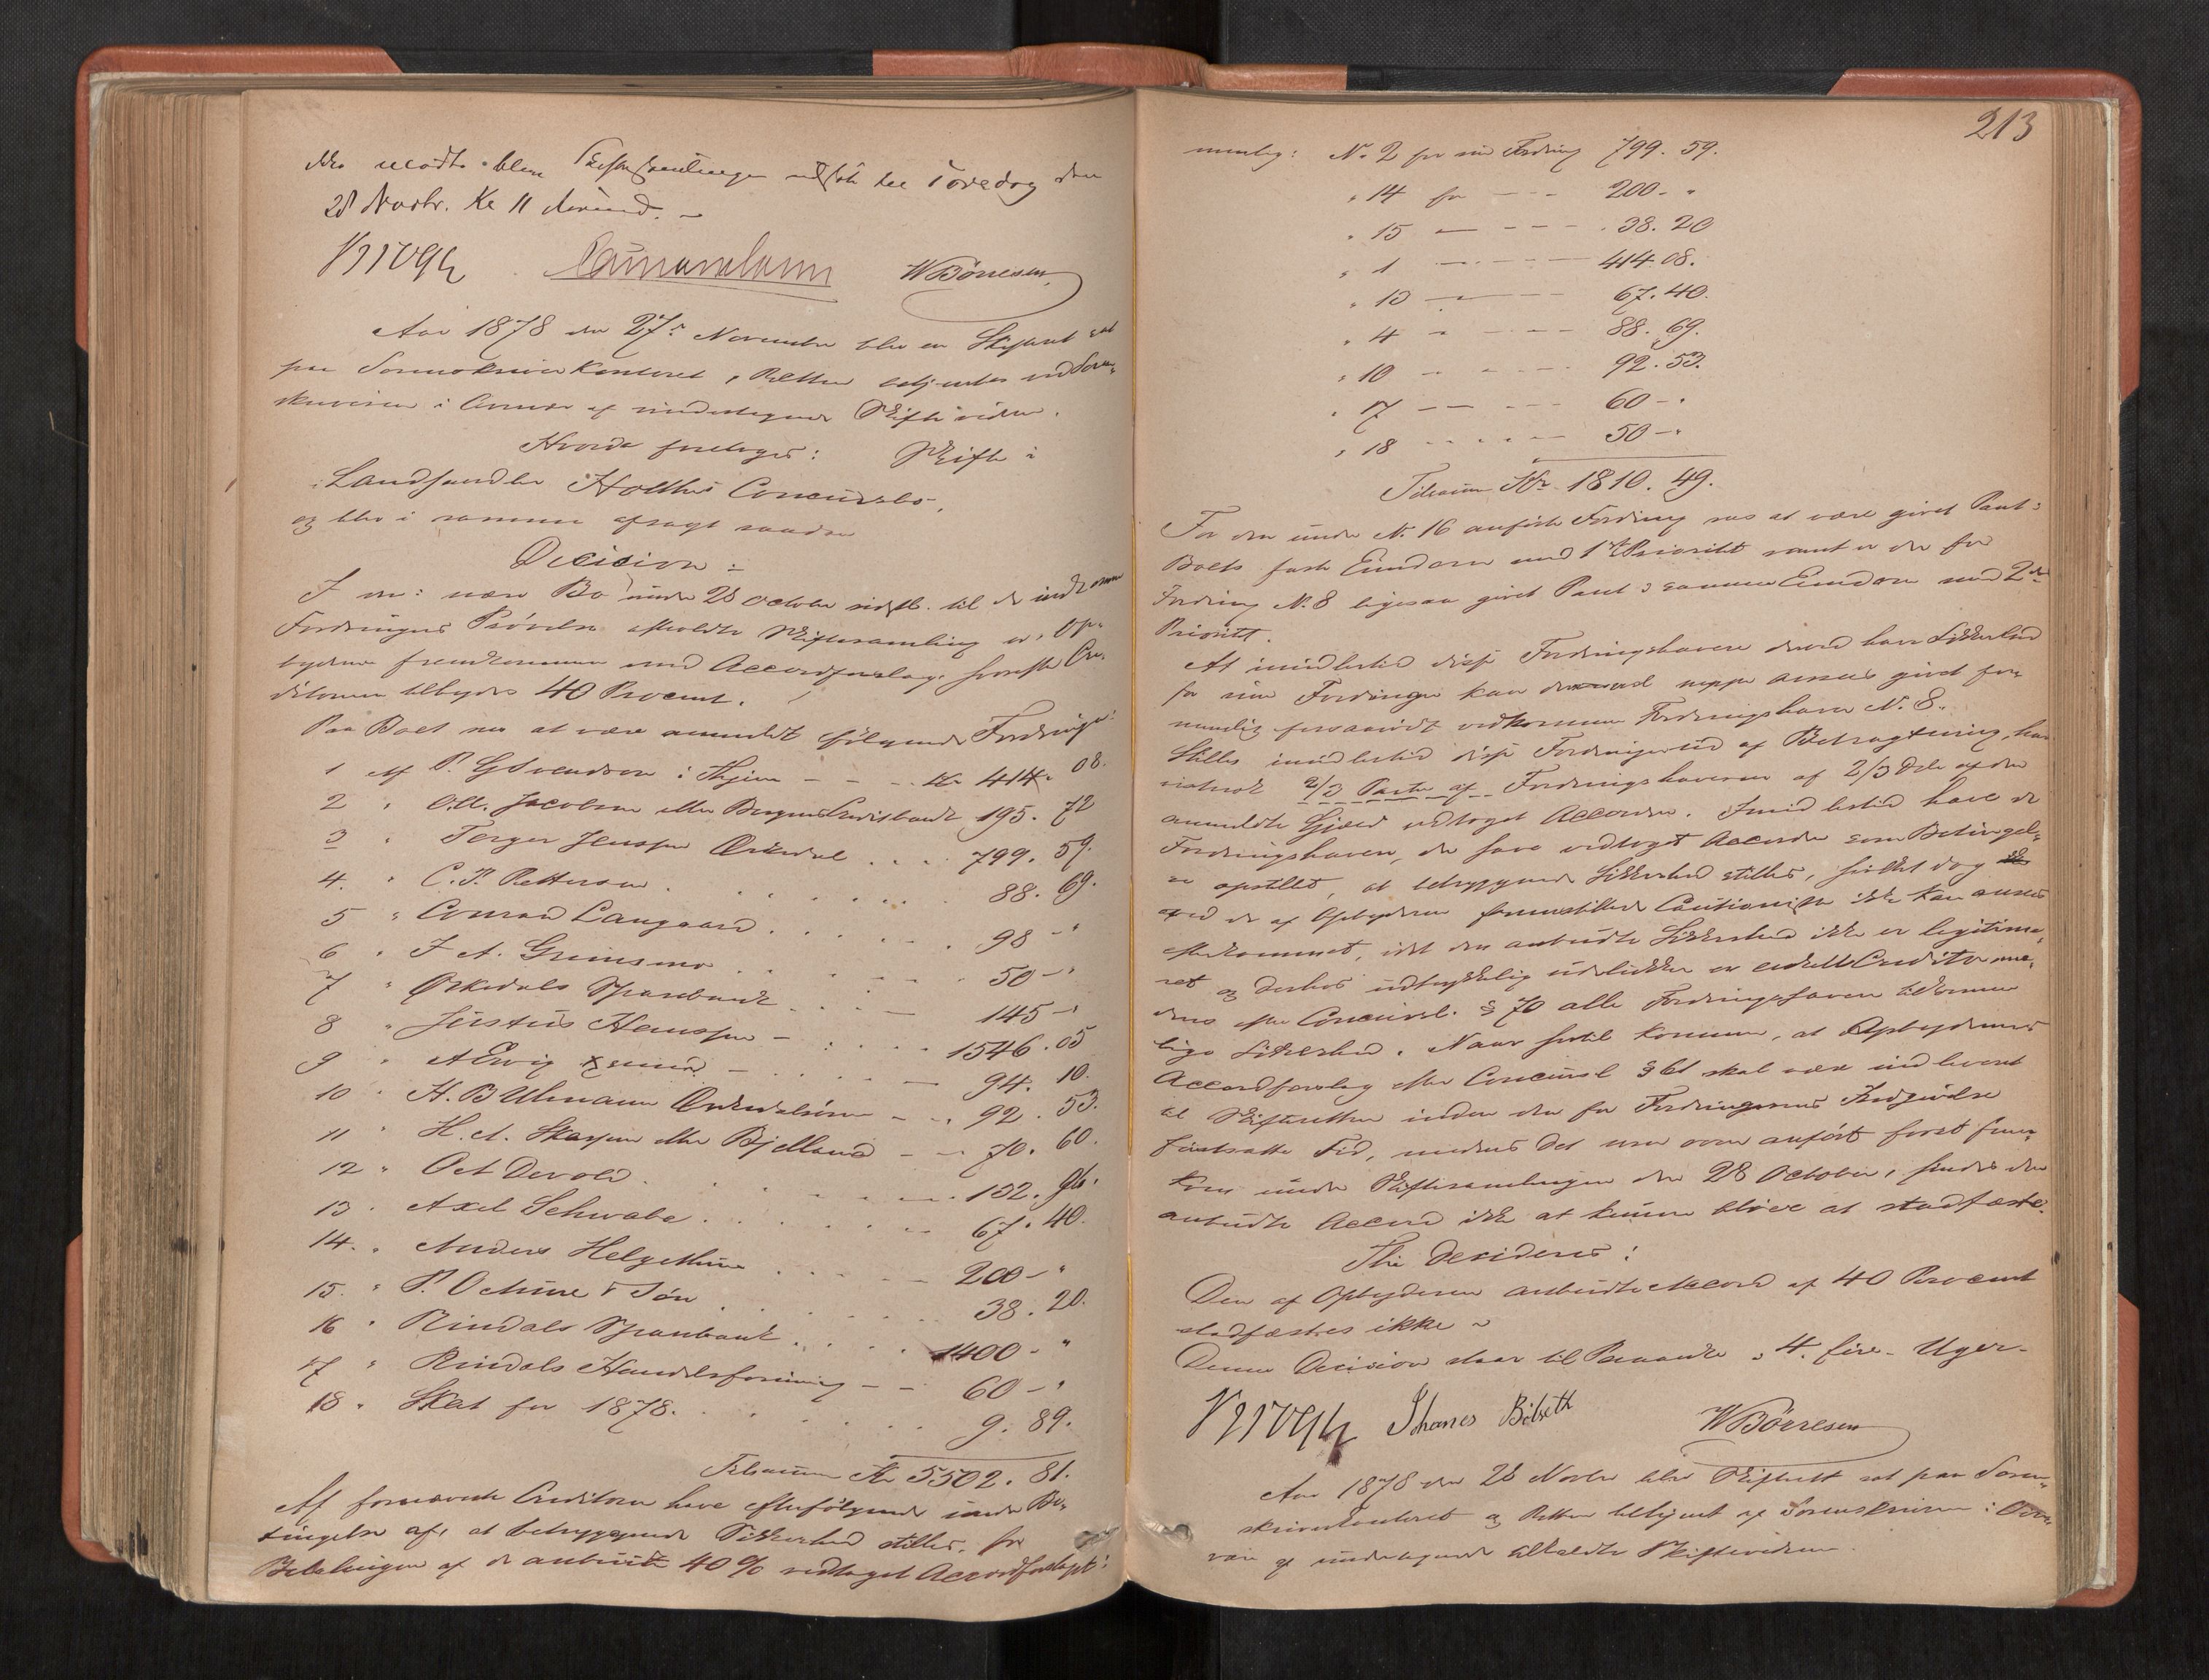 ikke mødte blev Skiftesamlingen udsat til Torsdag den
28 Novbr. Kl 11 Formd. -
Krogh W Börresen
Aar 1878 den 27de November blev en Skifteret sat
paa Sorenskriverkontoret, Retten betjentes ved Soren-
skriveren i Overvær af undertegnede Skiftevidner.
Hvorda foretoges: Skifte i
Landhandler Holthes Concursbo,
og blev i samme afsagt saadan
Decision:
I nærv: Bo under 28 October sidstl. til de indkomne
Fordringers Prövelse afholdte Skiftesamling er Op-
byderen fremkommen med Accordforslag, hvorefter Cre-
ditorerne tilbydes 40 Procent.
Paa Boet sees at være anmeldt fölgende Fordringer:
1 Af P. G Svendsen i Thjem - - - Kr 414. 08.
2 " O. A. Jacobsen eller Bergens Creditbank 195. 72
3 " Torger Jenssen Örkedal . . . . 799. 59.
4. " C. P. Petterson . . . . . . 88. 69.
5 " Conrad Langaard . . . . . . 98 - "
6 " J A. Grimsmo . . . . . 50 - "
7 " Örkedals Sparebank . . . - 145 - "
8 " Justus Hanssen - . . . . 1546. 05
9 " A Ewig - . . . . - 94. 10.
10 " H. B Uhmann Örkedalsören - - . 92. 53.
11 " H. A. Skarpen eller Bjelland - - 70. 60.
12 " Oct Devold . . . . . . 132. 96.
13. " Axel Schwabe . . . . . . 67. 40.
14. " Anders Helgethun . . . . - 200 - "
15. " P. Ochine & Sön . . . . . . 38. 20.
16 " Rindals Sparebank . . . . . 1400 - "
17 " Rindals Handelsforening - - 60 - "
18 " Skat for 1878. . . . . . . 9. 89.
Tilsammen Kr 5502. 81.
Af fornævnte Creditorer have efterfölgende under Be-
tingelse af, at betryggende Sikkerhed stilles for
Betalingen af de anbudte 40 % vedtaget Accordforslaget:
213
nemlig: No 2 for sin Fordring 799. 59.
" 14 for - - - 200 - "
" 15 - - - - . 38. 20
" 1 - - - - 414. 08.
" 13 - - - - 67. 40.
" 4 - - - - 88. 69.
" 10 - - - - 92. 53.
" 17 - - - - 60 - "
" 18 - - - - 50 - "
Tilsammen Kr 1810. 49.
For den under No 16 anförte Fordring sees at være givet Pant i
Boets faste Eiendom med 1ste Prioritet samt er der for
Fordring No 8 ligesaa givet Pant i samme Eiendom med 2den
Prioritet.
At imidlertid disse Fordringshavere derved have Sikkerhed
for sine Fordringer kan neppe ansees givet for-
nemlig forsaavidt vedkommer Fordringshaver No 8.
Stilles imidlertid disse Fordringer ud af Betragtning, har
vistnok 2/3 Parter af Fordringshaverne af 2/3 Dele af den
anmeldte Gjæld vedtaget Accorden. Imidlertid have de
Fordringshavere, der have vedtaget Accorden som Betingel-
se opstillet, at betryggende Sikkerhed stilles, hvilket dog
ved de af Opbyderen fremstillede Cautionister ikke kan ansees
efterkommet, idet den anbudte Sikkerhed ikke er legitime-
ret og derhos udtrykkelig udelukker en enkelt Creditor me-
dens efter Concursl. § 70 alle Fordringshavere tilkommer
lige Sikkerhed. Naar hertil kommer, at Opbyderens
Accordforslag efter Concursl § 61 skal være indleveret
til Skifteretten inden den for Fordringernes Indgivelse
fastsatte Tid, medens det som oven anfört först frem-
kom under Skiftesamlingen den 28 October, findes den
anbudte Accord ikke at kunne blive at stadfæste.
Thi decideres:
Den af Opbyderen anbudte Accord af 40 Procent
stadfæstes ikke
Denne Decision staar til Paaanke i 4. fire - Uger -
Krogh W Börresen
Aar 1878 den 28 Novbr blev Skifteret sat paa Soren-
skriverkontoret og Retten betjent af Sorenskriveren i Over-
vær af undertegnede tilkaldte Skiftevidner.